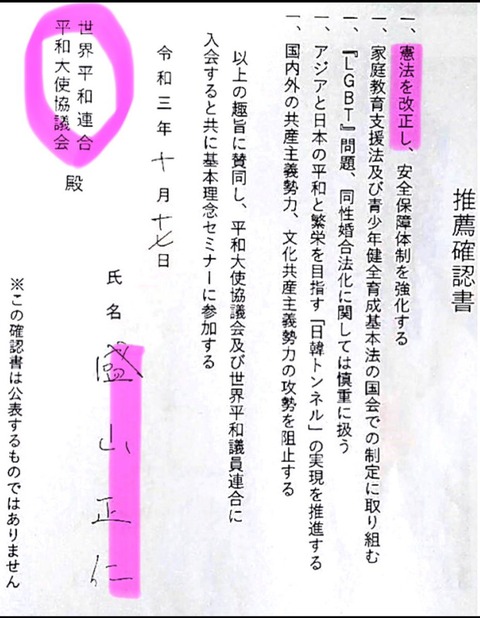 推薦確認書
一、憲法を改正し、安全保障体制を強化する
一、家庭教育支援法及び青少年健全育成基本法の国会での制定に取り組む
一、『LGBT』問題、同性婚合法化に関しては慎重に扱う
一、アジアと日本の平和と繁栄を目指す「日韓トンネル」の実現を推進する
一、国内外の共産主義勢力、文化共産主義勢力の攻勢を阻止する
以上の趣旨に賛同し、平和大使協議会及び世界平和議員連合に
入会すると共に基本理念セミナーに参加する
令和三年十月十七日
氏名 盛山正仁
世界平和連合
平和大使協議会 殿
※この確認書は公表するものではありません